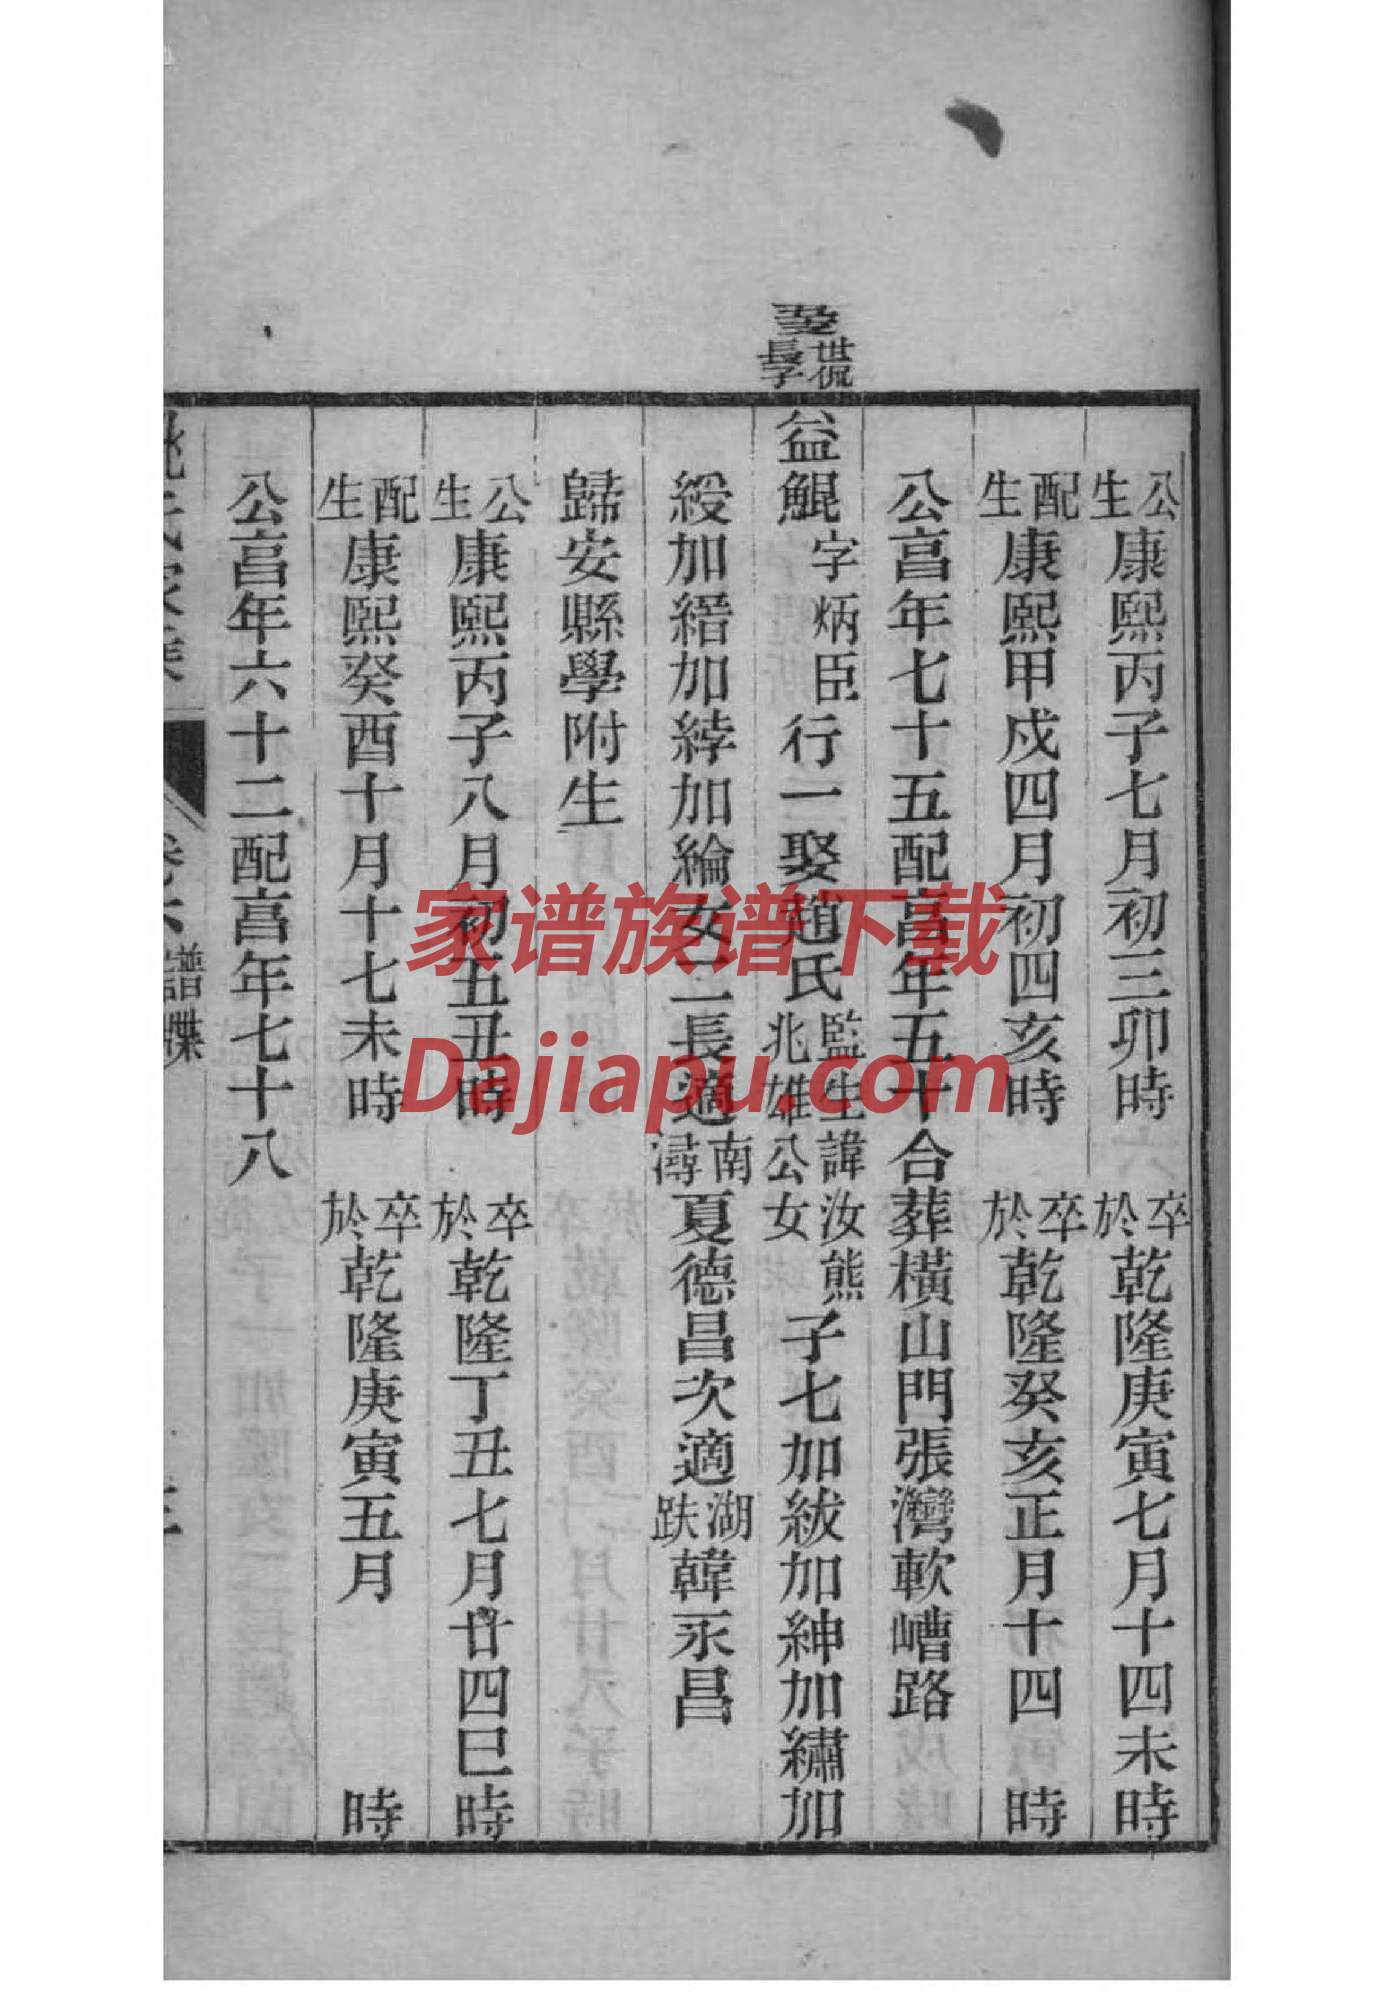 公生康熙丙子七月初三卯時 卒於乾隆庚寅七月十四未時
配生康熙甲戌四月初四亥時 卒於乾隆癸亥正月十四 時
公亯年七十五配亯年五十合葬橫山門張灣軟嶆路
世侃長子
益鯤字炳臣行一娶趙氏監生諱汝熊兆雄公女子七加紱加紳加繡加
綬加縉加綍加綸女二長適南潯夏德昌次適湖趺韓永昌
歸安縣學附生
公生康熙丙子八月初五丑時 卒於乾隆丁丑七月廿四巳時
配生康熙癸酉十月十七未時 卒於乾隆庚寅五月 時
公亯年六十二配亯年七十八
姚氏家乘 卷六 譜牒
家谱族谱下载
Dajiapu.com